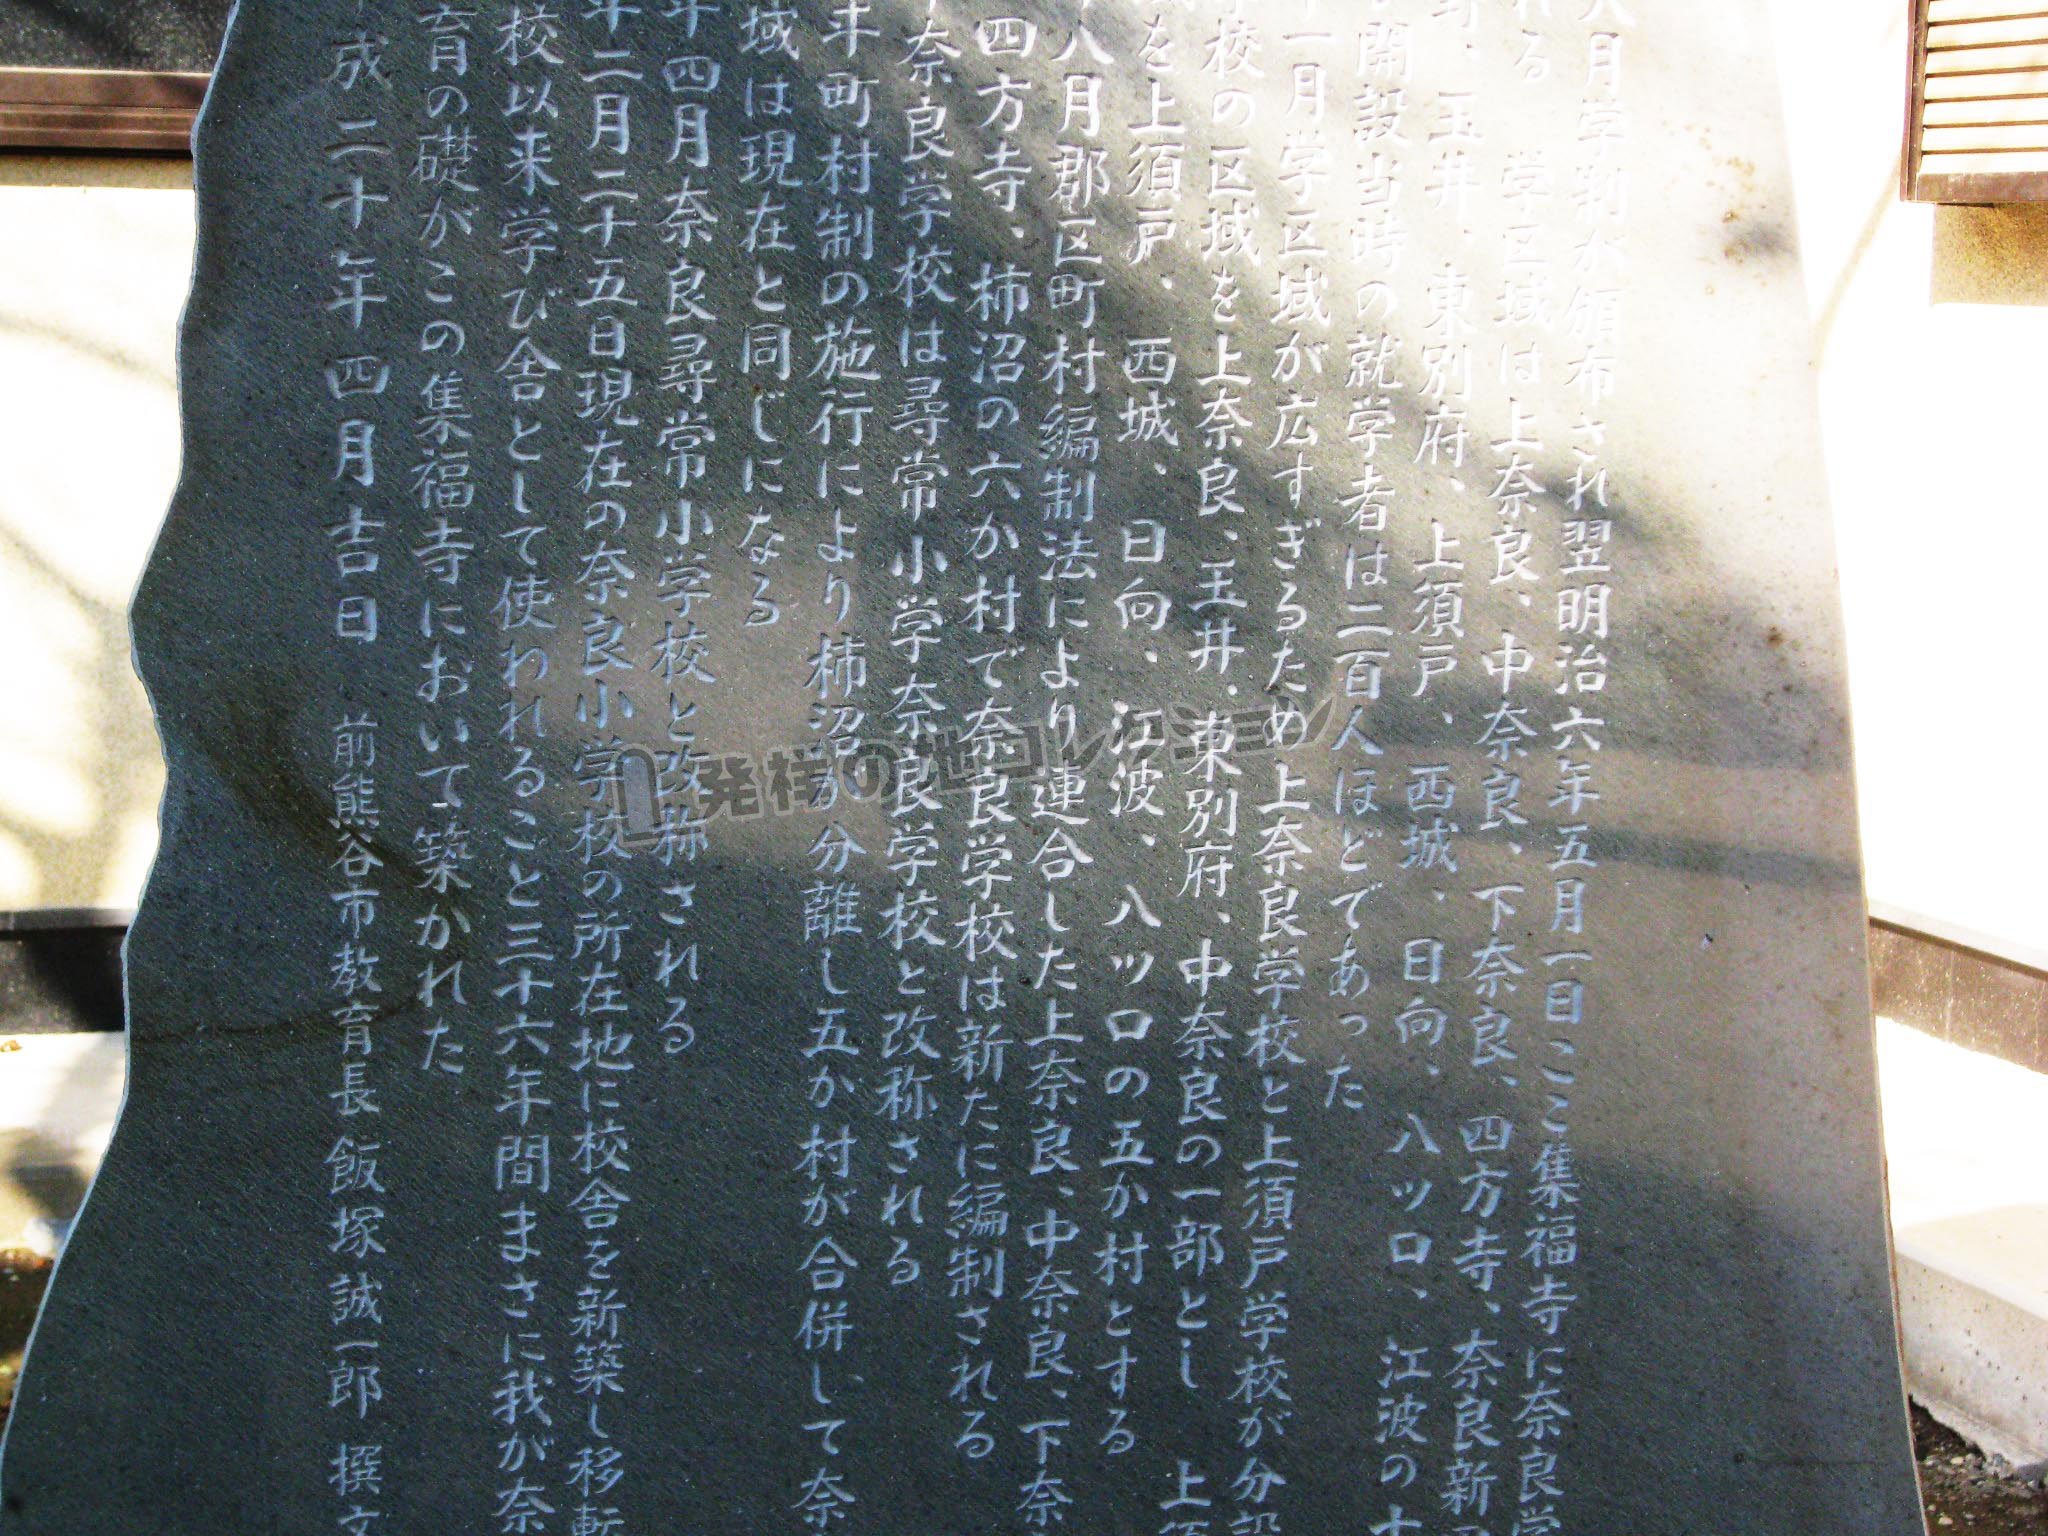 八月学制が頒布され翌明治六年五月一日ここ集福寺に奈良学
れる　学区域は上奈良、中奈良、下奈良、四方寺、奈良新
、玉井、東別府、上須戸、西城、日向、八ツ口、江波の十
開設当時の就学者は二百人ほどであった
一月学区域が広すぎるため上奈良学校と上須戸学校が分設
校の区域を上奈良、玉井、東別府、中奈良の一部とし　上須
を上須戸、西城、日向、江波、八ツ口の五か村とする
八月郡区町村編制法により連合した上奈良、中奈良、下奈
四方寺、柿沼の六か村で奈良学校は新たに編制される
奈良学校は尋常小学奈良学校と改称される
年町村制の施行により柿沼が分離し五か村が合併して奈
域は現在と同じになる
年四月奈良尋常小学校と改称される
年二月二十五日現在の奈良小学校の所在地に校舎を新築し移転
校以来学び舎として使われること三十六年間まさに我が奈
育の礎がこの集福寺において築かれた
成二十年四月吉日　前熊谷市教育長飯塚誠一郎　撰文
発祥の地コレクション